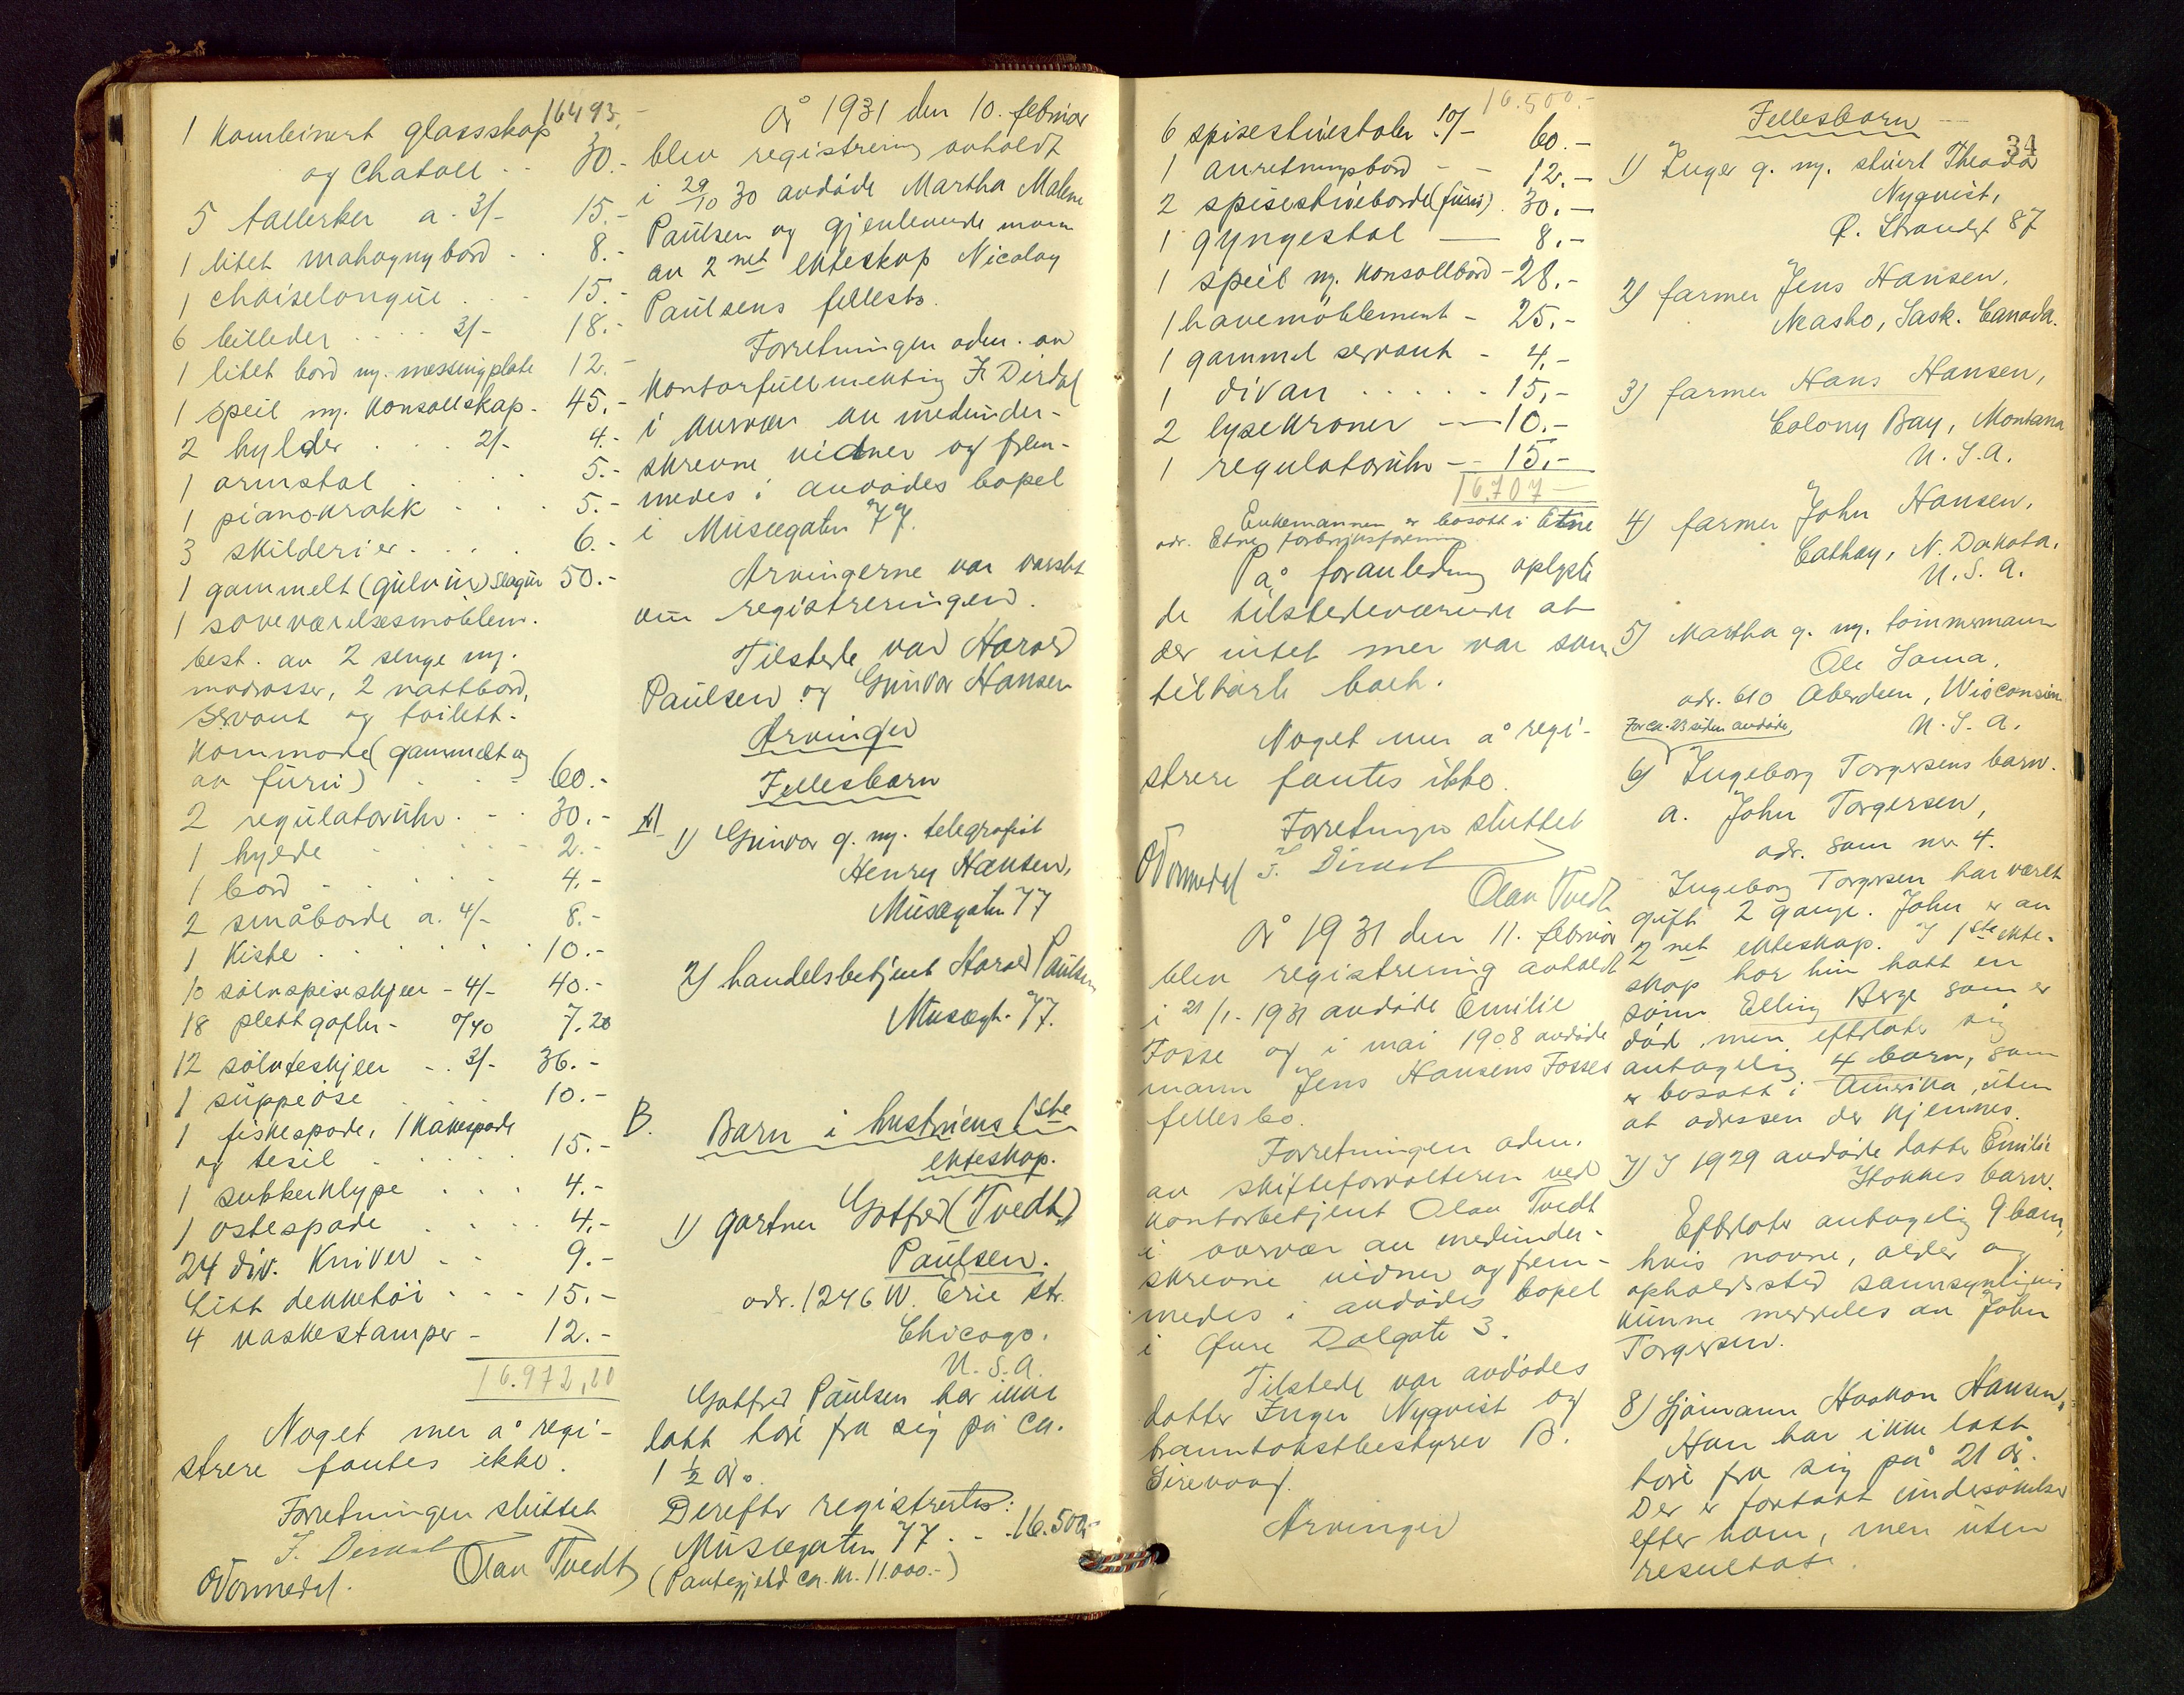 16493.-
1 Kombinert glasskap
og Chatoll . . 30.-
5 tallerker a. 3/- 15.-
1 litet mahognybord . . 8.-
1 chaiselongue . . . 15.-
6 billeder . . . 3/- 18.-
1 litet bord m. messingplate 12.-
1 speil m. Konsollskap. 45.-
2 hylder . . . 2/- 4.-
1 armstol . . . . 5.-
1 pianokrakk . . . 5.-
3 skilderier . . . . 6.-
1 gammelt (gulvur) slagur 50.-
1 soveværelsesmøblem.
best. av 2 senge m.
madrasser, 2 nattbord,
servant og toilett-
kommode (gammelt og
av furu) . . 60.-
2 regulatoruhr . . . 30.-
1 hylde . . . . . 2.-
1 bord . . . . . 4.-
2 småborde a. 4/- 8.-
1 Kiste . . . . . 10.-
10 sølvspiseskjeer - 4/- 40.-
18 plettgafler - 0/40 7.20
12 sølvteskjeer - . 3/- 36.-
1 suppeøse . . . 10.-
1 fiskespade, 1 Kakespade
og tesil . . . . . 15.-
1 sukkerklype . . . 4.-
1 ostespade . . . . 4.-
24 div. Kniver . . 9.-
Litt dekketøi . . . 15.-
4 vaskestamper - 12.-
16.972,20
Noget mer å regi-
strere fantes ikke.
Forretningen sluttet
F. Dirdal
O Vormedal. Olav Tvedt
År 1931 den 10. februar
blev registrering avholdt
i 29/10 30 avdøde Martha Malene
Paulsen og gjenlevende mann
av 2net ekteskap Nicolay
Paulsens fellesbo.
Forretningen adm. av
Kontorfullmektig F. Dirdal
i overvær av medunder-
skrevne vidner og frem-
medes i avdødes bopel
i Musegaten 77.
Arvingerne var varslet
om registreringen.
Tilstede var Harald
Paulsen og Gunvor Hansen
Arvinger
Fellesbarn
A 1) Gunvor g. m. telegrafist
Henry Hansen,
Musegaten 77
2) handelsbetjent Harald Paulsen
Musegt. 77.
B. Barn i hustruens 1ste
ekteskap.
1) gartner Gotfred (Tvedt)
Paulsen.
adr. 1246 W. Erie str.
Chicago.
U. S. A.
Gotfred Paulsen har ikke
latt høre fra sig på ca.
1 ½ år.
Derefter registrertes:
Musegaten 77 . . 16.500.-
(Pantegjeld ca. kr. 11.000.-)
16.500.-
6 spisestuestoler 10/- 60.-
1 anretningsbord - - 12.-
2 spisestueborde (furu) . 30.-
1 gyngestol — 8.-
1 speil m. Konsollbord - 28.-
1 havemøblement - 25.-
1 gammel servant - 4.-
1 divan . . . . . 15.-
2 lysekroner - — 10.-
1 regulatoruhr - - 15.-
16.707 -
Enkemannen er bosatt i Etne
adr. Etne forbruksforening
På foranledning oplyste
de tilstedeværende at
der intet mer var som
tilhørte boet.
Noget mer å regi-
strere fantes ikke.
Forretningen sluttet
O Vormedal F. Dirdal
Olav Tvedt
År 1931 den 11. februar
blev registrering avholdt
i 21/1 - 1931 avdøde Emilie
Fosse og i mai 1908 avdøde
mann Jens Hansens Fosses
fellesbo.
Forretningen adm.
av skifteforvalteren ved
Kontorbetjent Olav Tvedt
i overvær av medunder-
skrevne vidner og frem-
medes i avdødes bopel
i Øvre Dalgate 3.
Tilstede var avdødes
datter Inger Nyqvist og
branntakstbestyrer B.
Sirevaag.
Arvinger
34
Fellesbarn —
1) Inger g. m. stuert Theodor
Nyqvist,
Ø. Strandgt 87
2) farmer Jens Hansen,
Neasho, Sask. Canada.
3) farmer Hans Hansen,
Colony Bay, Montana
U. S. A.
4) farmer John Hansen,
Cathay, N. Dakota.
U. S. A.
5) Martha g. m. tømmermann
Ole Soma,
adr. 610 Aberdeen, Wisconsin
U. S. A.
For ca. 23 siden avdøde,
6) Ingeborg Torgersens barn.
a. John Torgersen,
adr. som nr 4.
Ingeborg Torgersen har vært
gift 2 gange. John er av
2 net ekteskap. I 1ste ekte-
skap har hun hatt en
sønn Elling Berge som er
død, men efterlater sig
antagelig 4 barn, som
er bosatt i Amerika, uten
at adressen der kjennes.
7) I 1929 avdøde datter Emilie
Stokkes barn.
Efterlater antagelig 9 barn,
hvis navne, alder og
opholdssted sannsynligvis
kunne meddeles av John
Torgersen.
8) Sjømann Haakon Hansen,
Han har ikke latt
høre fra sig på 21 år.
Der er foretatt undersøkelser
efter ham, men uten
resultat.